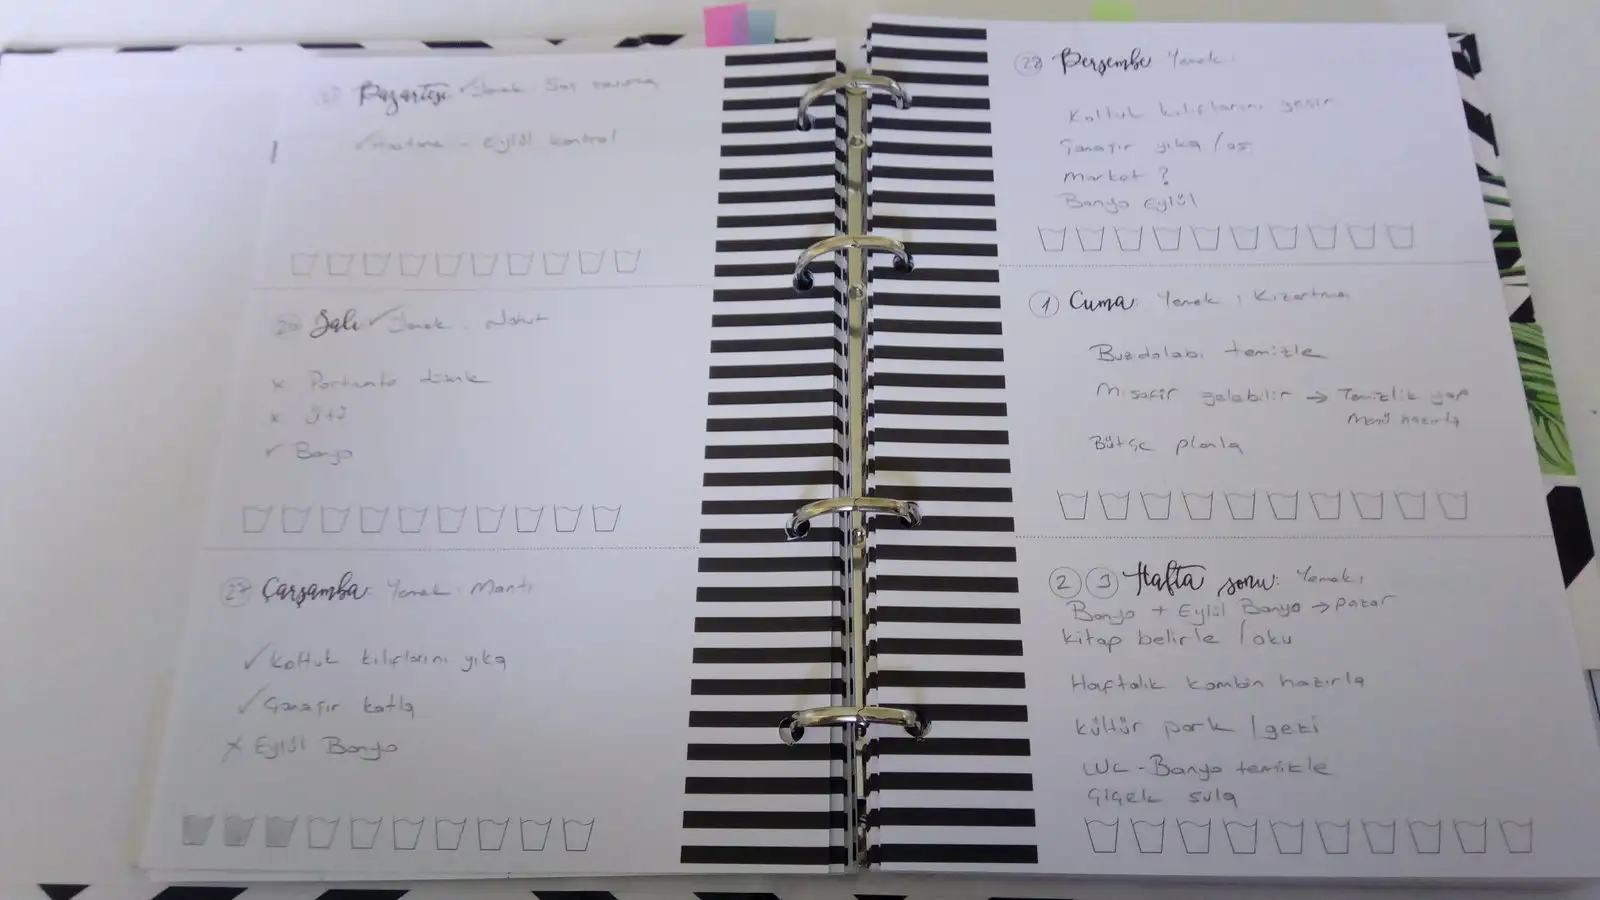 Pazartesi ✓ Yemek: Saç kavurma
✓ Hastane - Eylül kontrol
26 Salı ✓ Yemek: Nohut
x Portmanto
x Ütü
✓ Banyo
27 Çarşamba: Yemek: Mantı
✓ Koltuk kılıflarını yıka
✓ Çamaşır katla
x Eylül Banyo
28 Perşembe Yemek:
Koltuk kılıflarını geçir
Çamaşır yıka / as
Market ?
Banyo Eylül
1 Cuma: Yemek: Kızartma
Buzdolabı temizle
Misafir gelebilir → Temizlik yap
Menü hazırla
Bütçe planla
2 3 Hafta sonu: Yemek:
Banyo + Eylül Banyo → pazar
kitap belirle / oku
Haftalık kombin hazırla
kültür park / gezi
WC - Banyo temizle
Çiçek sula